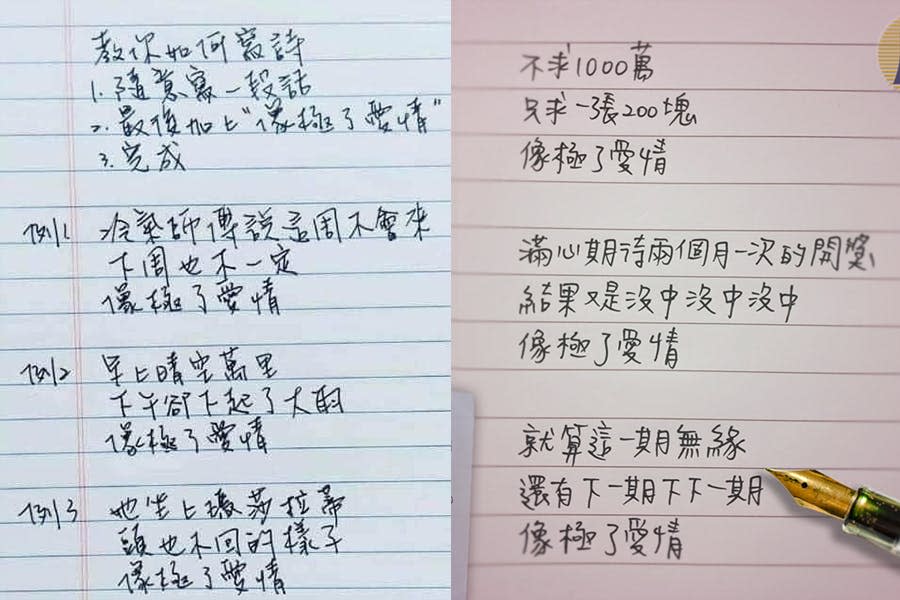 教你如何寫詩
1. 隨意寫一段話
2. 最後加上"像極了愛情"
3. 完成
例1 冷氣師傅說這周不會來
下周也不一定
像極了愛情
例2 早上晴空萬里
下午卻下起了大雨
像極了愛情
例3 她坐上瑪莎拉蒂
頭也不回的樣子
像極了愛情
不求1000萬
只求一張200塊
像極了愛情
滿心期待兩個月一次的開獎
結果又是沒中沒中沒中
像極了愛情
就算這一期無緣
還有下一期下下一期
像極了愛情